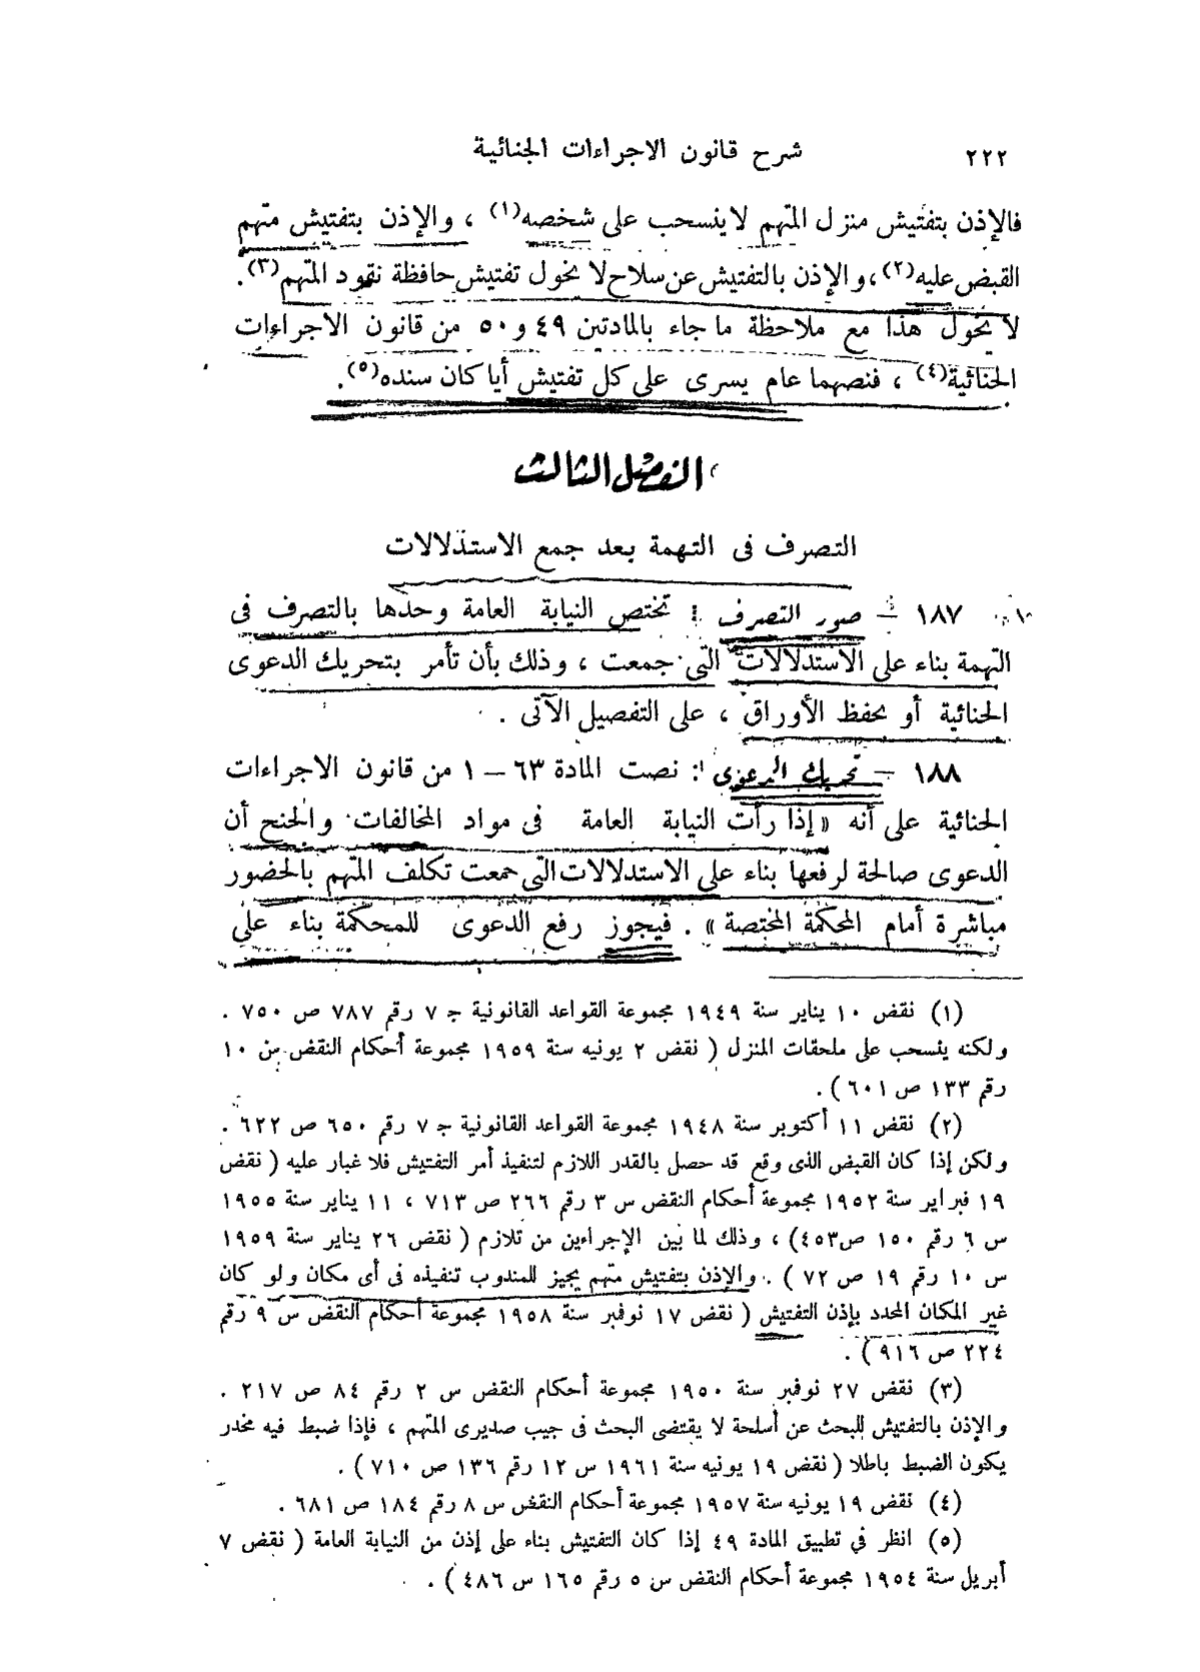 ٢٢٢ شرح قانون الاجراءات الجنائية
فالإذن بتفتيش منزل المتهم لا ينسحب على شخصه(١) ، والإذن بتفتيش متهم
القبض عليه(٢)، والإذن بالتفتيش عن سلاح لا يخول تفتيش حافظة نقود المتهم(٣).
لا يخول هذا مع ملاحظة ما جاء بالمادتين ٤٩ و ٥٠ من قانون الاجراءات
الجنائية(٤) ، فنصهما عام يسرى على كل تفتيش أيا كان سنده(٥).
الفصل الثالث
التصرف فى التهمة بعد جمع الاستدلالات
١٨٧ — صور التصرف : تختص النيابة العامة وحدها بالتصرف فى
التهمة بناء على الاستدلالات التى جمعت ، وذلك بأن تأمر بتحريك الدعوى
الجنائية أو بحفظ الأوراق ، على التفصيل الآتى .
١٨٨ — تحريك الدعوى : نصت المادة ٦٣ — ١ من قانون الاجراءات
الجنائية على أنه «إذا رأت النيابة العامة فى مواد المخالفات والجنح أن
الدعوى صالحة لرفعها بناء على الاستدلالات التى جمعت تكلف المتهم بالحضور
مباشرة أمام المحكمة المختصة» . فيجوز رفع الدعوى للمحكمة بناء على
(١) نقض ١٠ يناير سنة ١٩٤٩ مجموعة القواعد القانونية جـ ٧ رقم ٧٨٧ ص ٧٥٠ .
ولكنه ينسحب على ملحقات المنزل ( نقض ٢ يونيه سنة ١٩٥٩ مجموعة أحكام النقض س ١٠
رقم ١٣٣ ص ٦٠١ ) .
(٢) نقض ١١ أكتوبر سنة ١٩٤٨ مجموعة القواعد القانونية جـ ٧ رقم ٦٥٠ ص ٦٢٢ .
ولكن إذا كان القبض الذى وقع قد حصل بالقدر اللازم لتنفيذ أمر التفتيش فلا غبار عليه ( نقض
١٩ فبراير سنة ١٩٥٢ مجموعة أحكام النقض س ٣ رقم ٢٦٦ ص ٧١٣ ، ١١ يناير سنة ١٩٥٥
س ٦ رقم ١٥٠ ص ٤٥٣) ، وذلك لما بين الإجراءين من تلازم ( نقض ٢٦ يناير سنة ١٩٥٩
س ١٠ رقم ١٩ ص ٧٢ ) . والإذن بتفتيش متهم يجيز للمندوب تنفيذه فى أى مكان ولو كان
غير المكان المحدد بإذن التفتيش ( نقض ١٧ نوفمبر سنة ١٩٥٨ مجموعة أحكام النقض س ٩ رقم
٢٢٤ ص ٩١٦ ) .
(٣) نقض ٢٧ نوفمبر سنة ١٩٥٠ مجموعة أحكام النقض س ٢ رقم ٨٤ ص ٢١٧ .
والإذن بالتفتيش للبحث عن أسلحة لا يقتضى البحث فى جيب صديرى المتهم ، فإذا ضبط فيه مخدر
يكون الضبط باطلا ( نقض ١٩ يونيه سنة ١٩٦١ س ١٢ رقم ١٣٦ ص ٧١٠ ) .
(٤) نقض ١٩ يونيه سنة ١٩٥٧ مجموعة أحكام النقض س ٨ رقم ١٨٤ ص ٦٨١ .
(٥) انظر في تطبيق المادة ٤٩ إذا كان التفتيش بناء على إذن من النيابة العامة ( نقض ٧
أبريل سنة ١٩٥٤ مجموعة أحكام النقض س ٥ رقم ١٦٥ س ٤٨٦ ) .